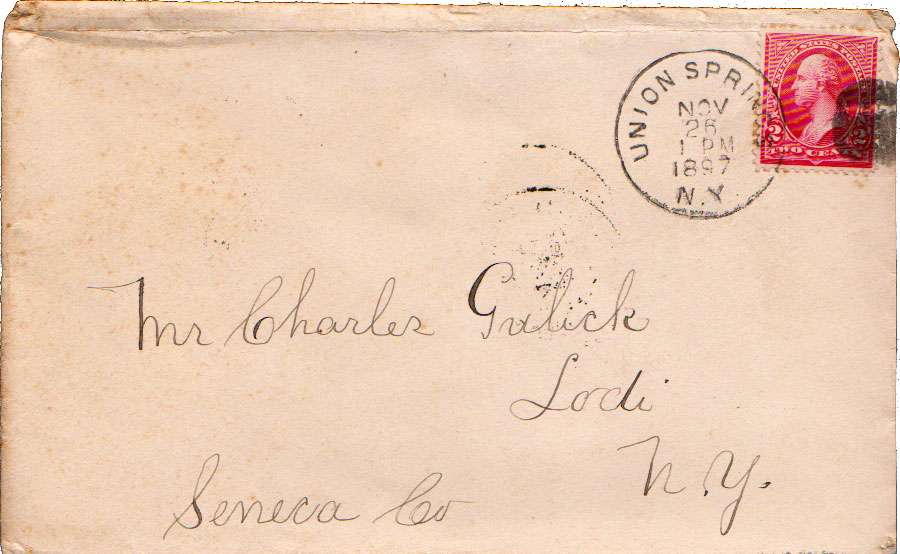 UNION SPRIN
NOV
26
1 PM
1897
N.Y.
UNITED STATES POSTAGE
2 2
TWO CENTS
Mr Charles Gulick
Lodi
N.Y.
Seneca Co